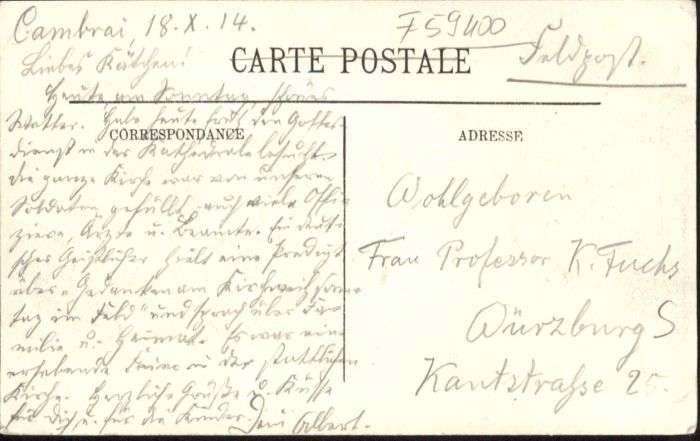 Cambrai, 18.X.14.
F 59400
Feldpost.
CARTE POSTALE
Liebes Kätchen!
Heute, am Sonntag, schönes
Wetter. Habe heute früh den Gottes-
CORRESPONDANCE
dienst in der Kathedrale besucht.
Die ganze Kirche war von unseren
Soldaten gefüllt, auch viele Offi-
ziere, Ärzte u. Beamte. Ein deut-
sches Geistlicher hielt eine Predigt
über "Gedanken am Kirchweihsonn-
tag im Feld" und sprach über Fa-
milie u. Heimat. Es war eine
erhebende Feier in der stattlichen
Kirche. Herzliche Grüße u. Küsse
für Dich u. für die Kinder. Dein Albert.
ADRESSE
Wohlgeboren
Frau Professor K. Fuchs
Würzburg S
Kantstrasse 25.